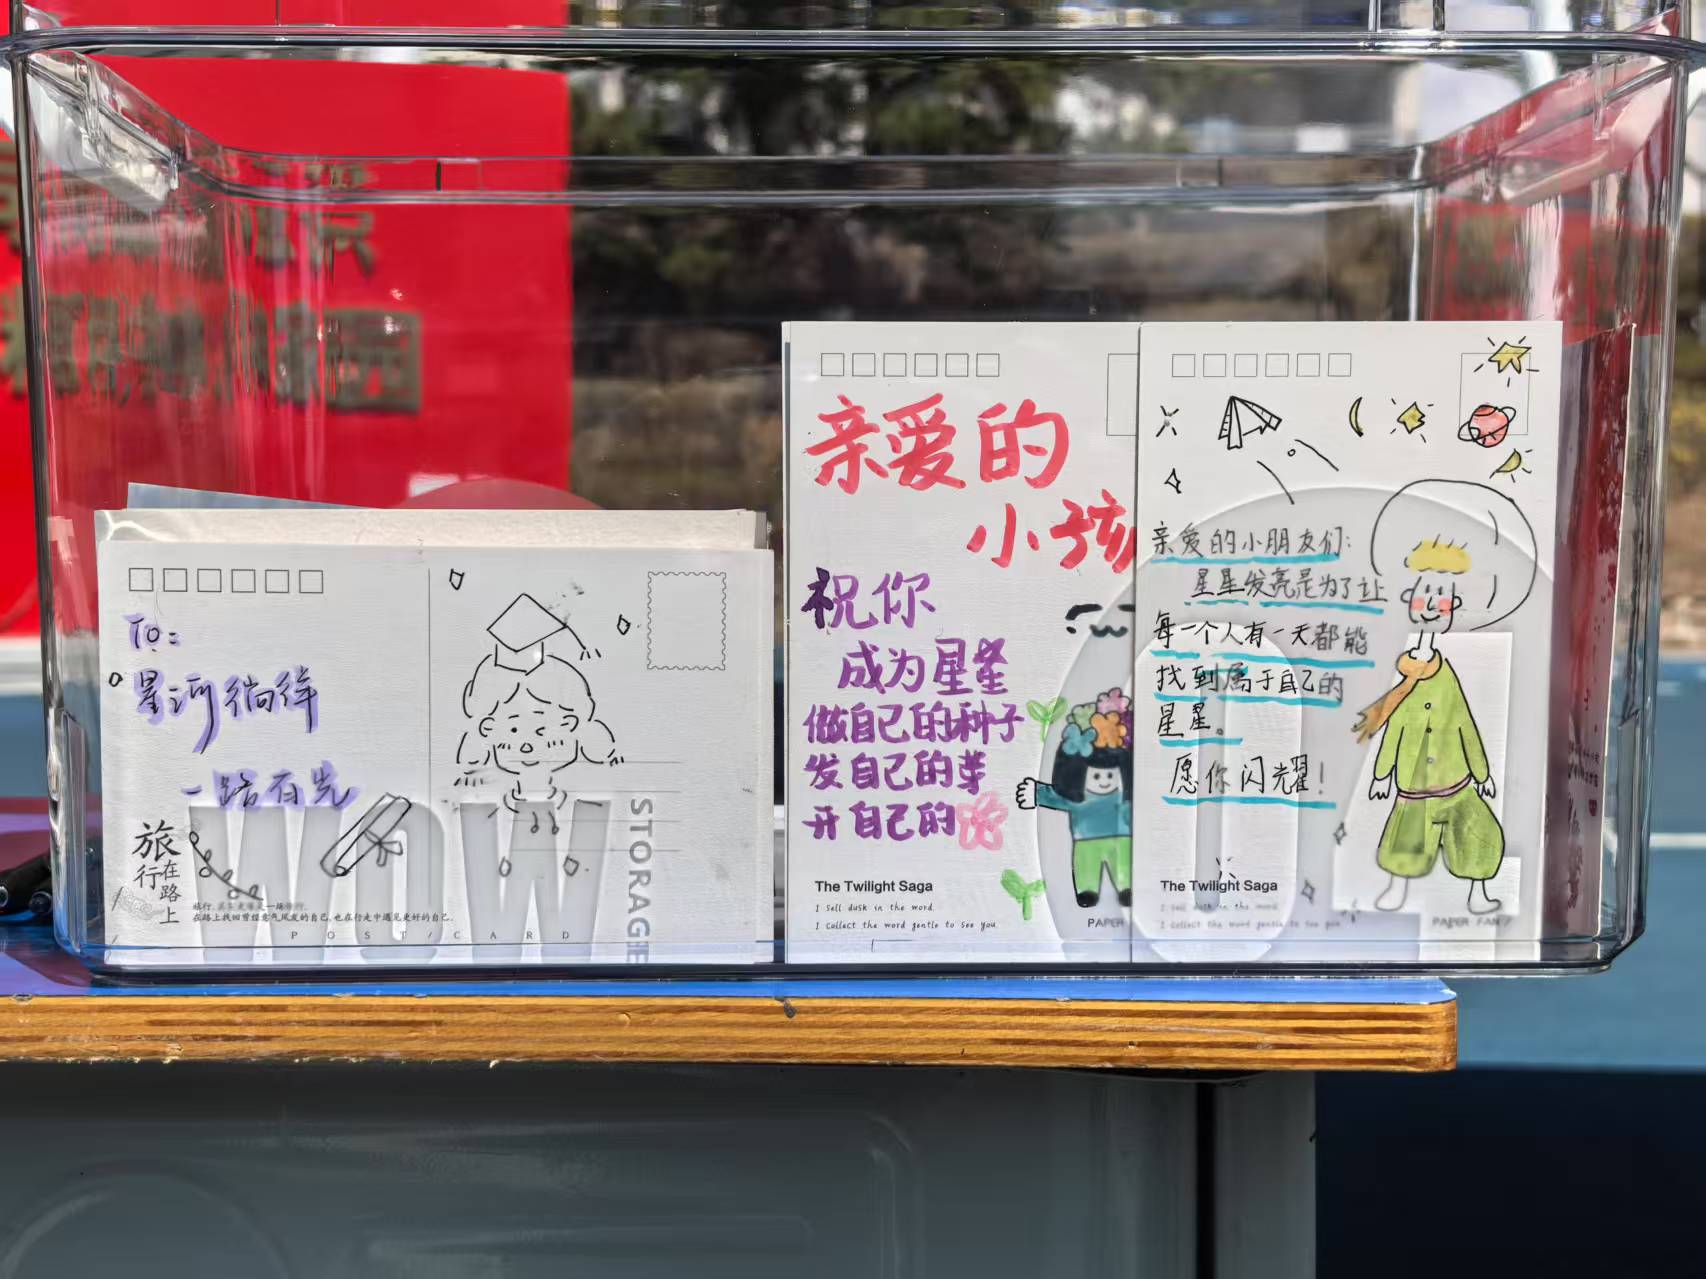 To:
星河徜徉
一路有光
旅行
在路上
在路上找回曾经意气风发的自己,也在行走中遇见更好的自己。
POST/CARD
WOW
STORAGE
亲爱的
小孩
祝你
成为星星
做自己的种子
发自己的芽
开自己的
The Twilight Saga
I sell dusk in the word.
I collect the word gentle to see you
PAPER
亲爱的小朋友们:
星星发亮是为了让
每一个人有一天都能
找到属于自己的
星星。
愿你闪耀!
The Twilight Saga
I sell dusk in the word.
I collect the word gentle to see you
PAPER FAN /